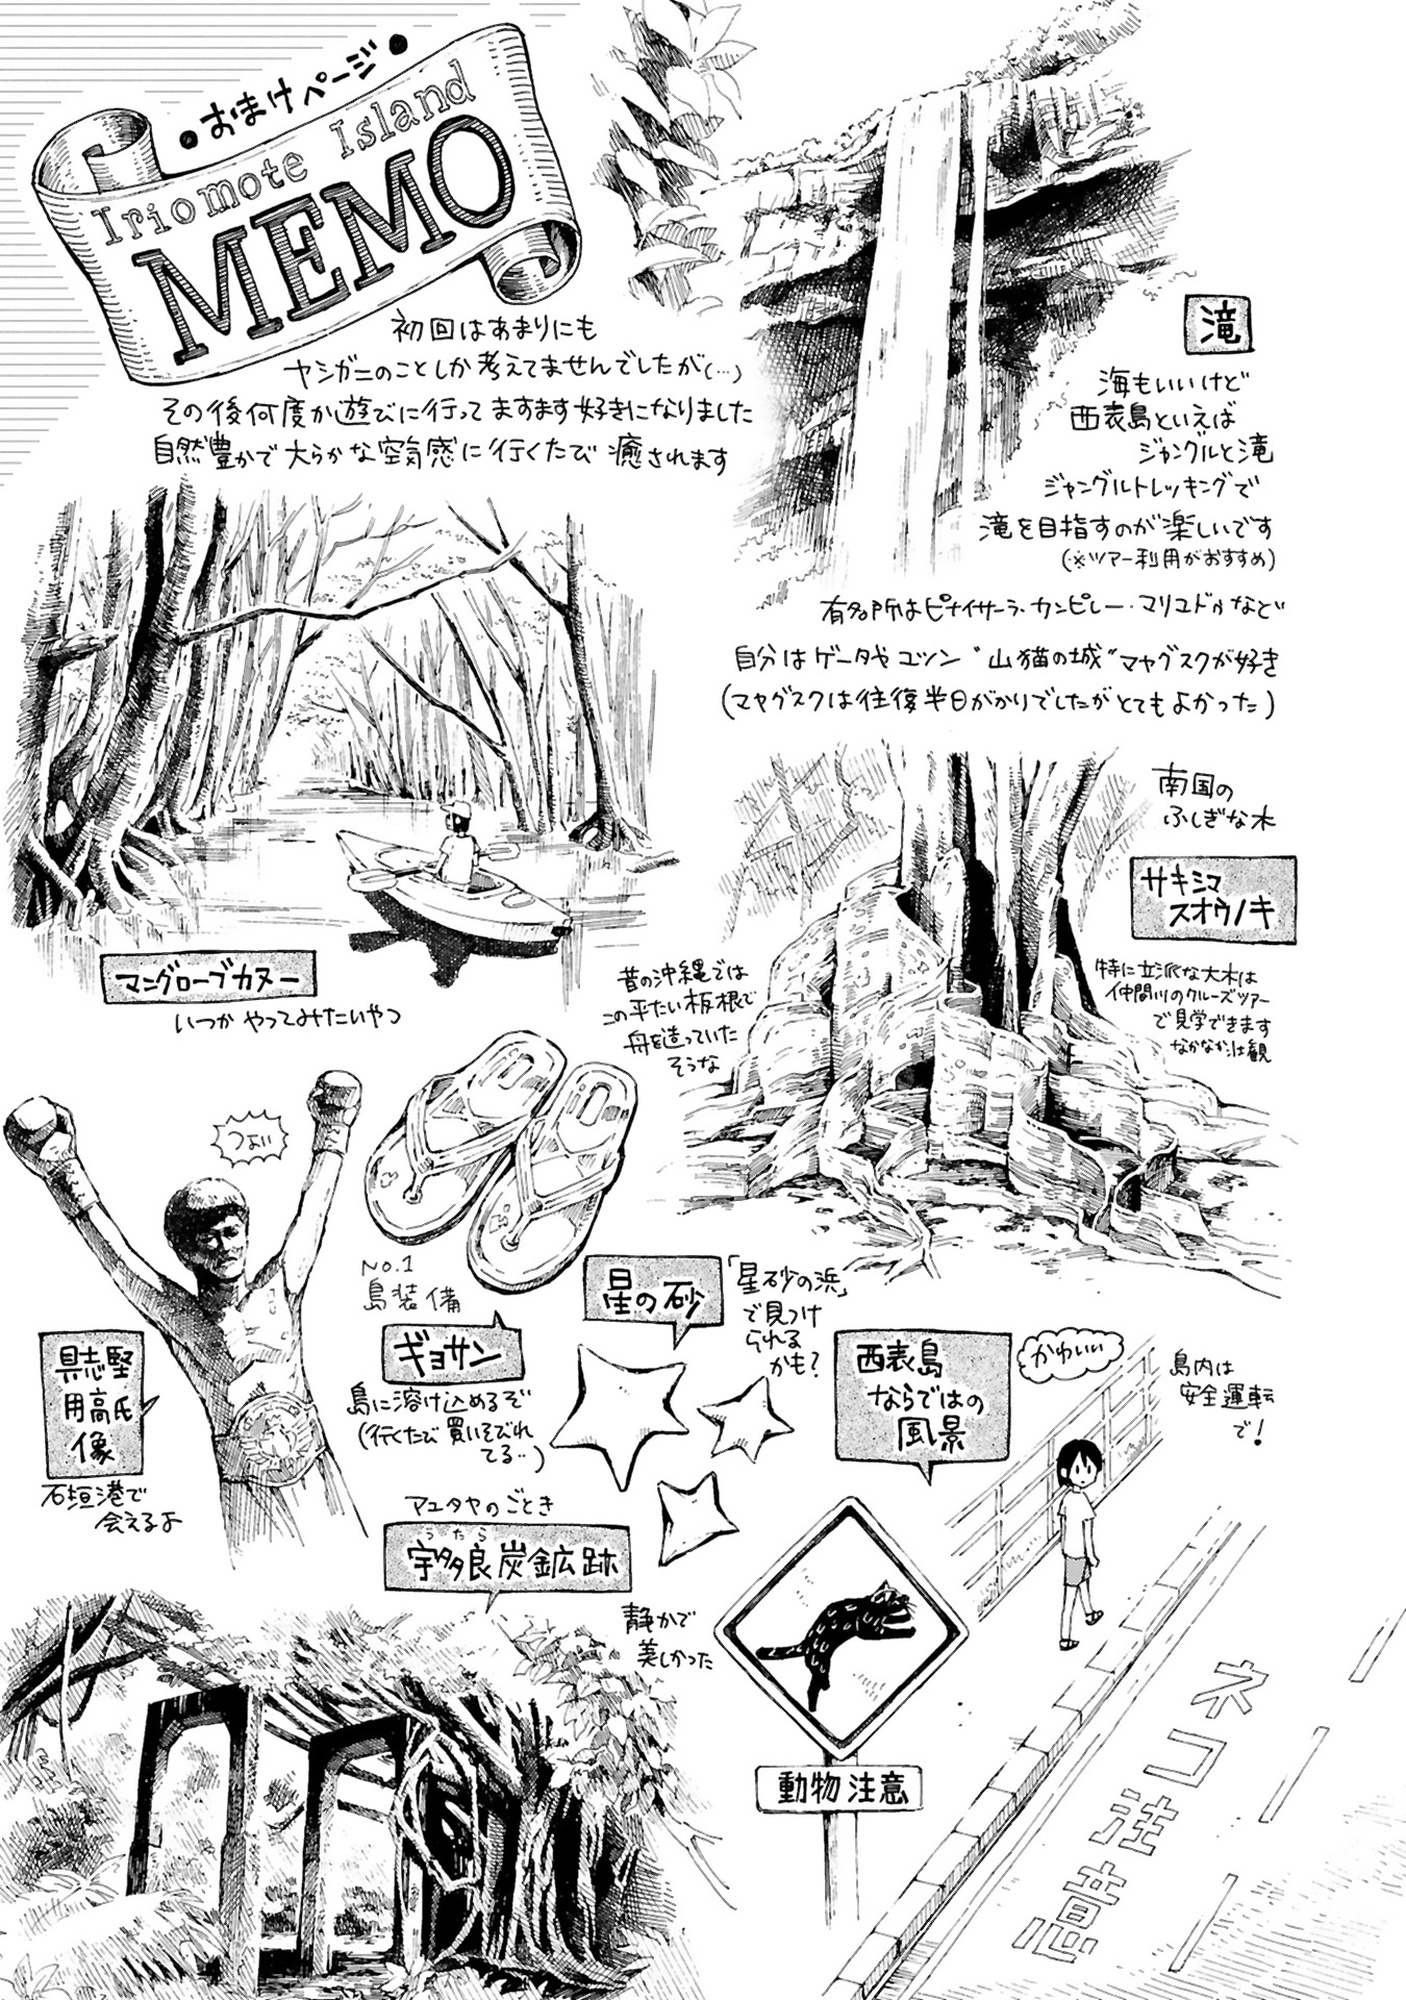 おまけページ
Iriomote Island
MEMO
初回はあまりにも
ヤシガニのことしか考えてませんでしたが(…)
その後何度か遊びに行ってますます好きになりました
自然豊かで大らかな空気感に行くたび癒されます
滝
海もいいけど
西表島といえば
ジャングルと滝
ジャングルトレッキングで
滝を目指すのが楽しいです
(※ツアー利用がおすすめ)
有名所はピナイサーラ・カンピレー・マリユドゥなど
自分はゲータやユツン “山猫の城”マヤグスクが好き
(マヤグスクは往復半日がかりでしたがとてもよかった)
マングローブカヌー
いつか やってみたいやつ
南国の
ふしぎな木
サキシマ
スオウノキ
特に立派な大木は
仲間川のクルーズツアー
で見学できます
なかなか壮観
昔の沖縄では
この平たい板根で
舟を造っていた
そうな
つよい
具志堅
用高氏
像
石垣港で
会えるよ
No.1
島装備
ギョサン
島に溶け込めるぞ
(行くたび買いそびれ
てる…)
星の砂
「星砂の浜」
で見つけ
られる
かも?
西表島
ならではの
風景
かわいい
島内は
安全運転
で!
動物注意
ネコ注意
アユタヤのごとき
うたら
宇多良炭鉱跡
静かで
美しかった